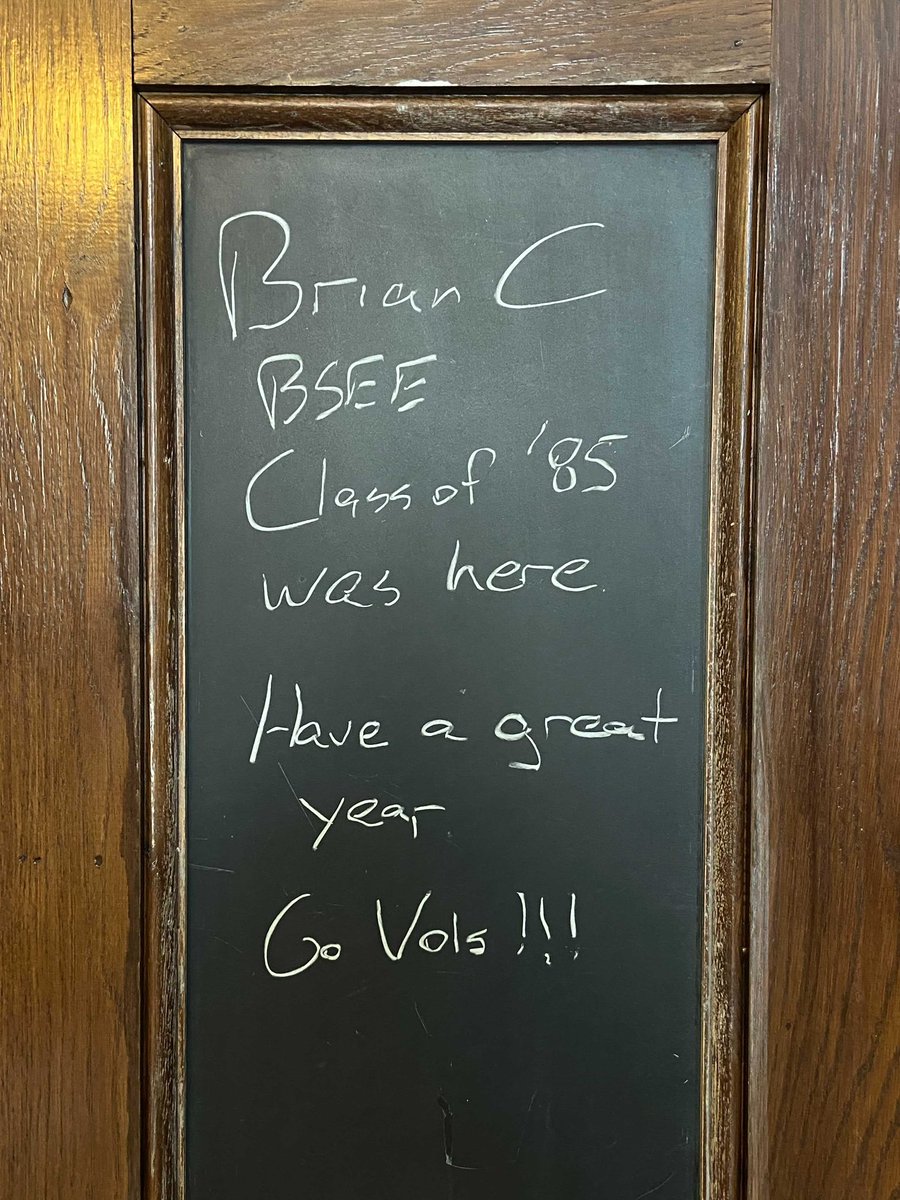 Brian C
BSEE
Class of '85
was here.
Have a great
year
Go Vols !!!